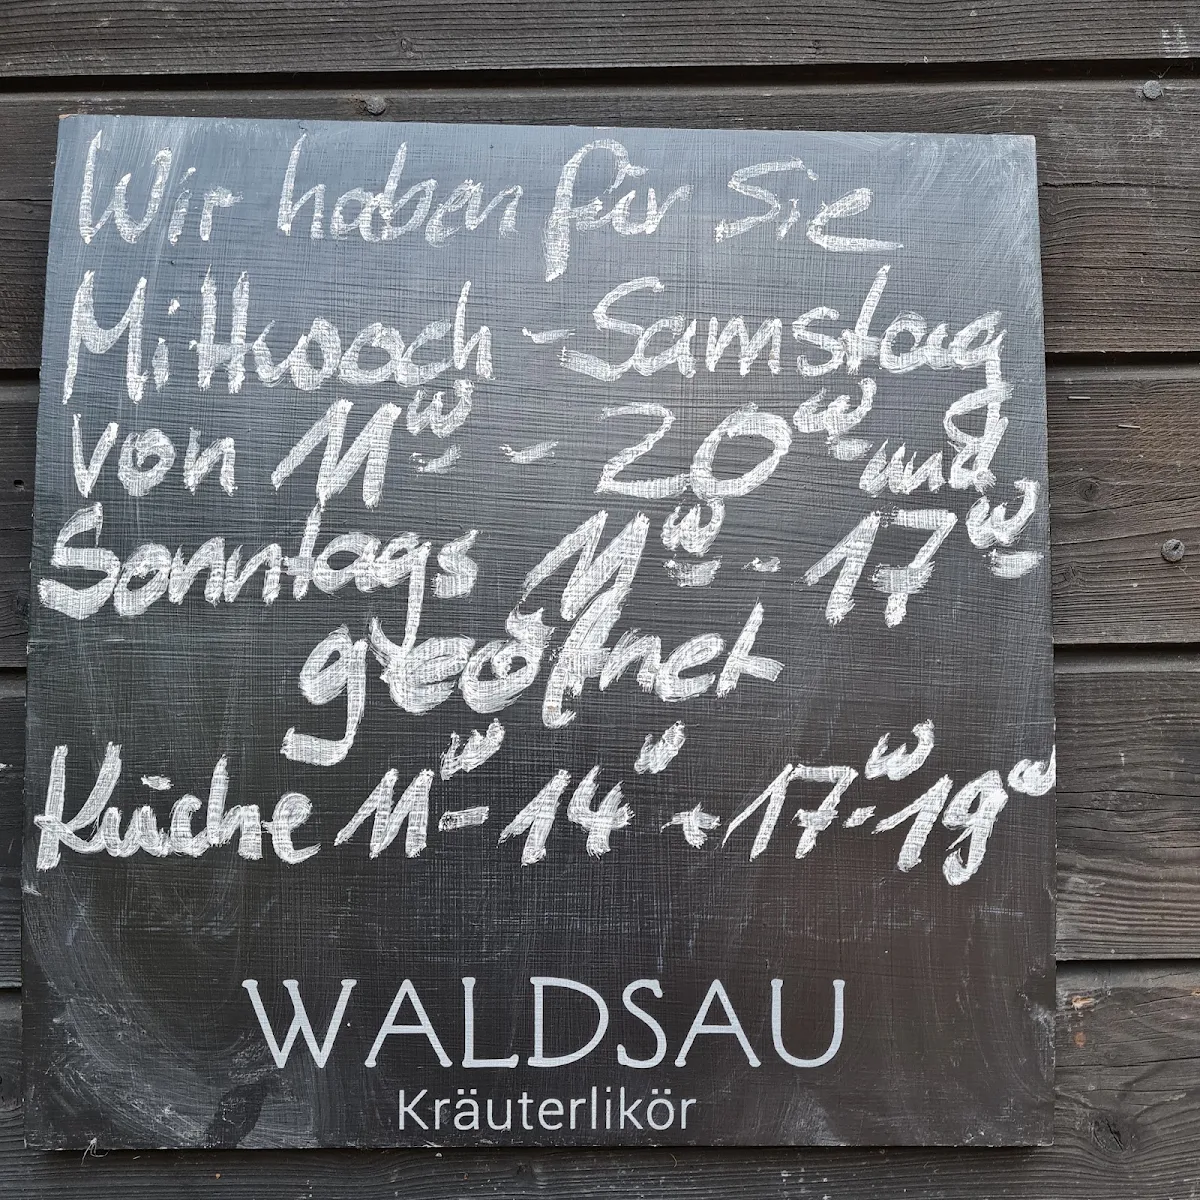 Wir haben für Sie
Mittwoch - Samstag
von 11⁰⁰ - 20⁰⁰ und
Sonntags 11⁰⁰ - 17⁰⁰
geöfnet
Küche 11⁰⁰ - 14⁰⁰ + 17⁰⁰ - 19⁰⁰
WALDSAU
Kräuterlikör